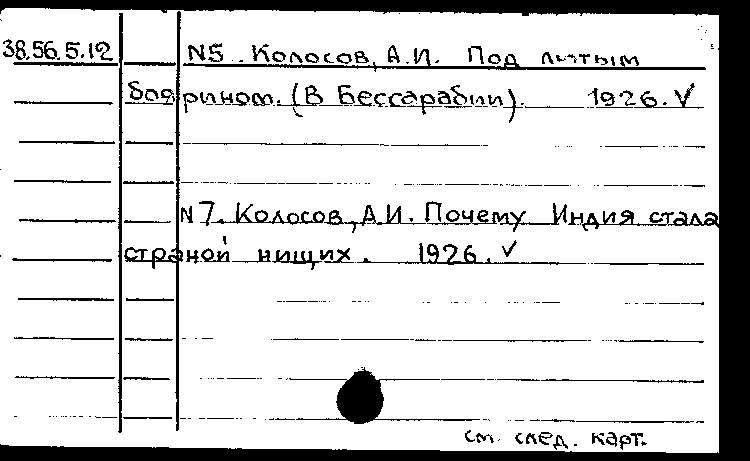 38.56.5.12 N5. Колосов, А.И. Под лютым
боярином. (В Бессарабии). 1926. V
N7. Колосов, А.И. Почему Индия стала
страной нищих. 1926. V
см. след. карт.